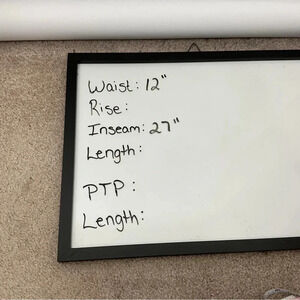 Waist: 12"
Rise:
Inseam: 27"
Length:
PTP:
Length: